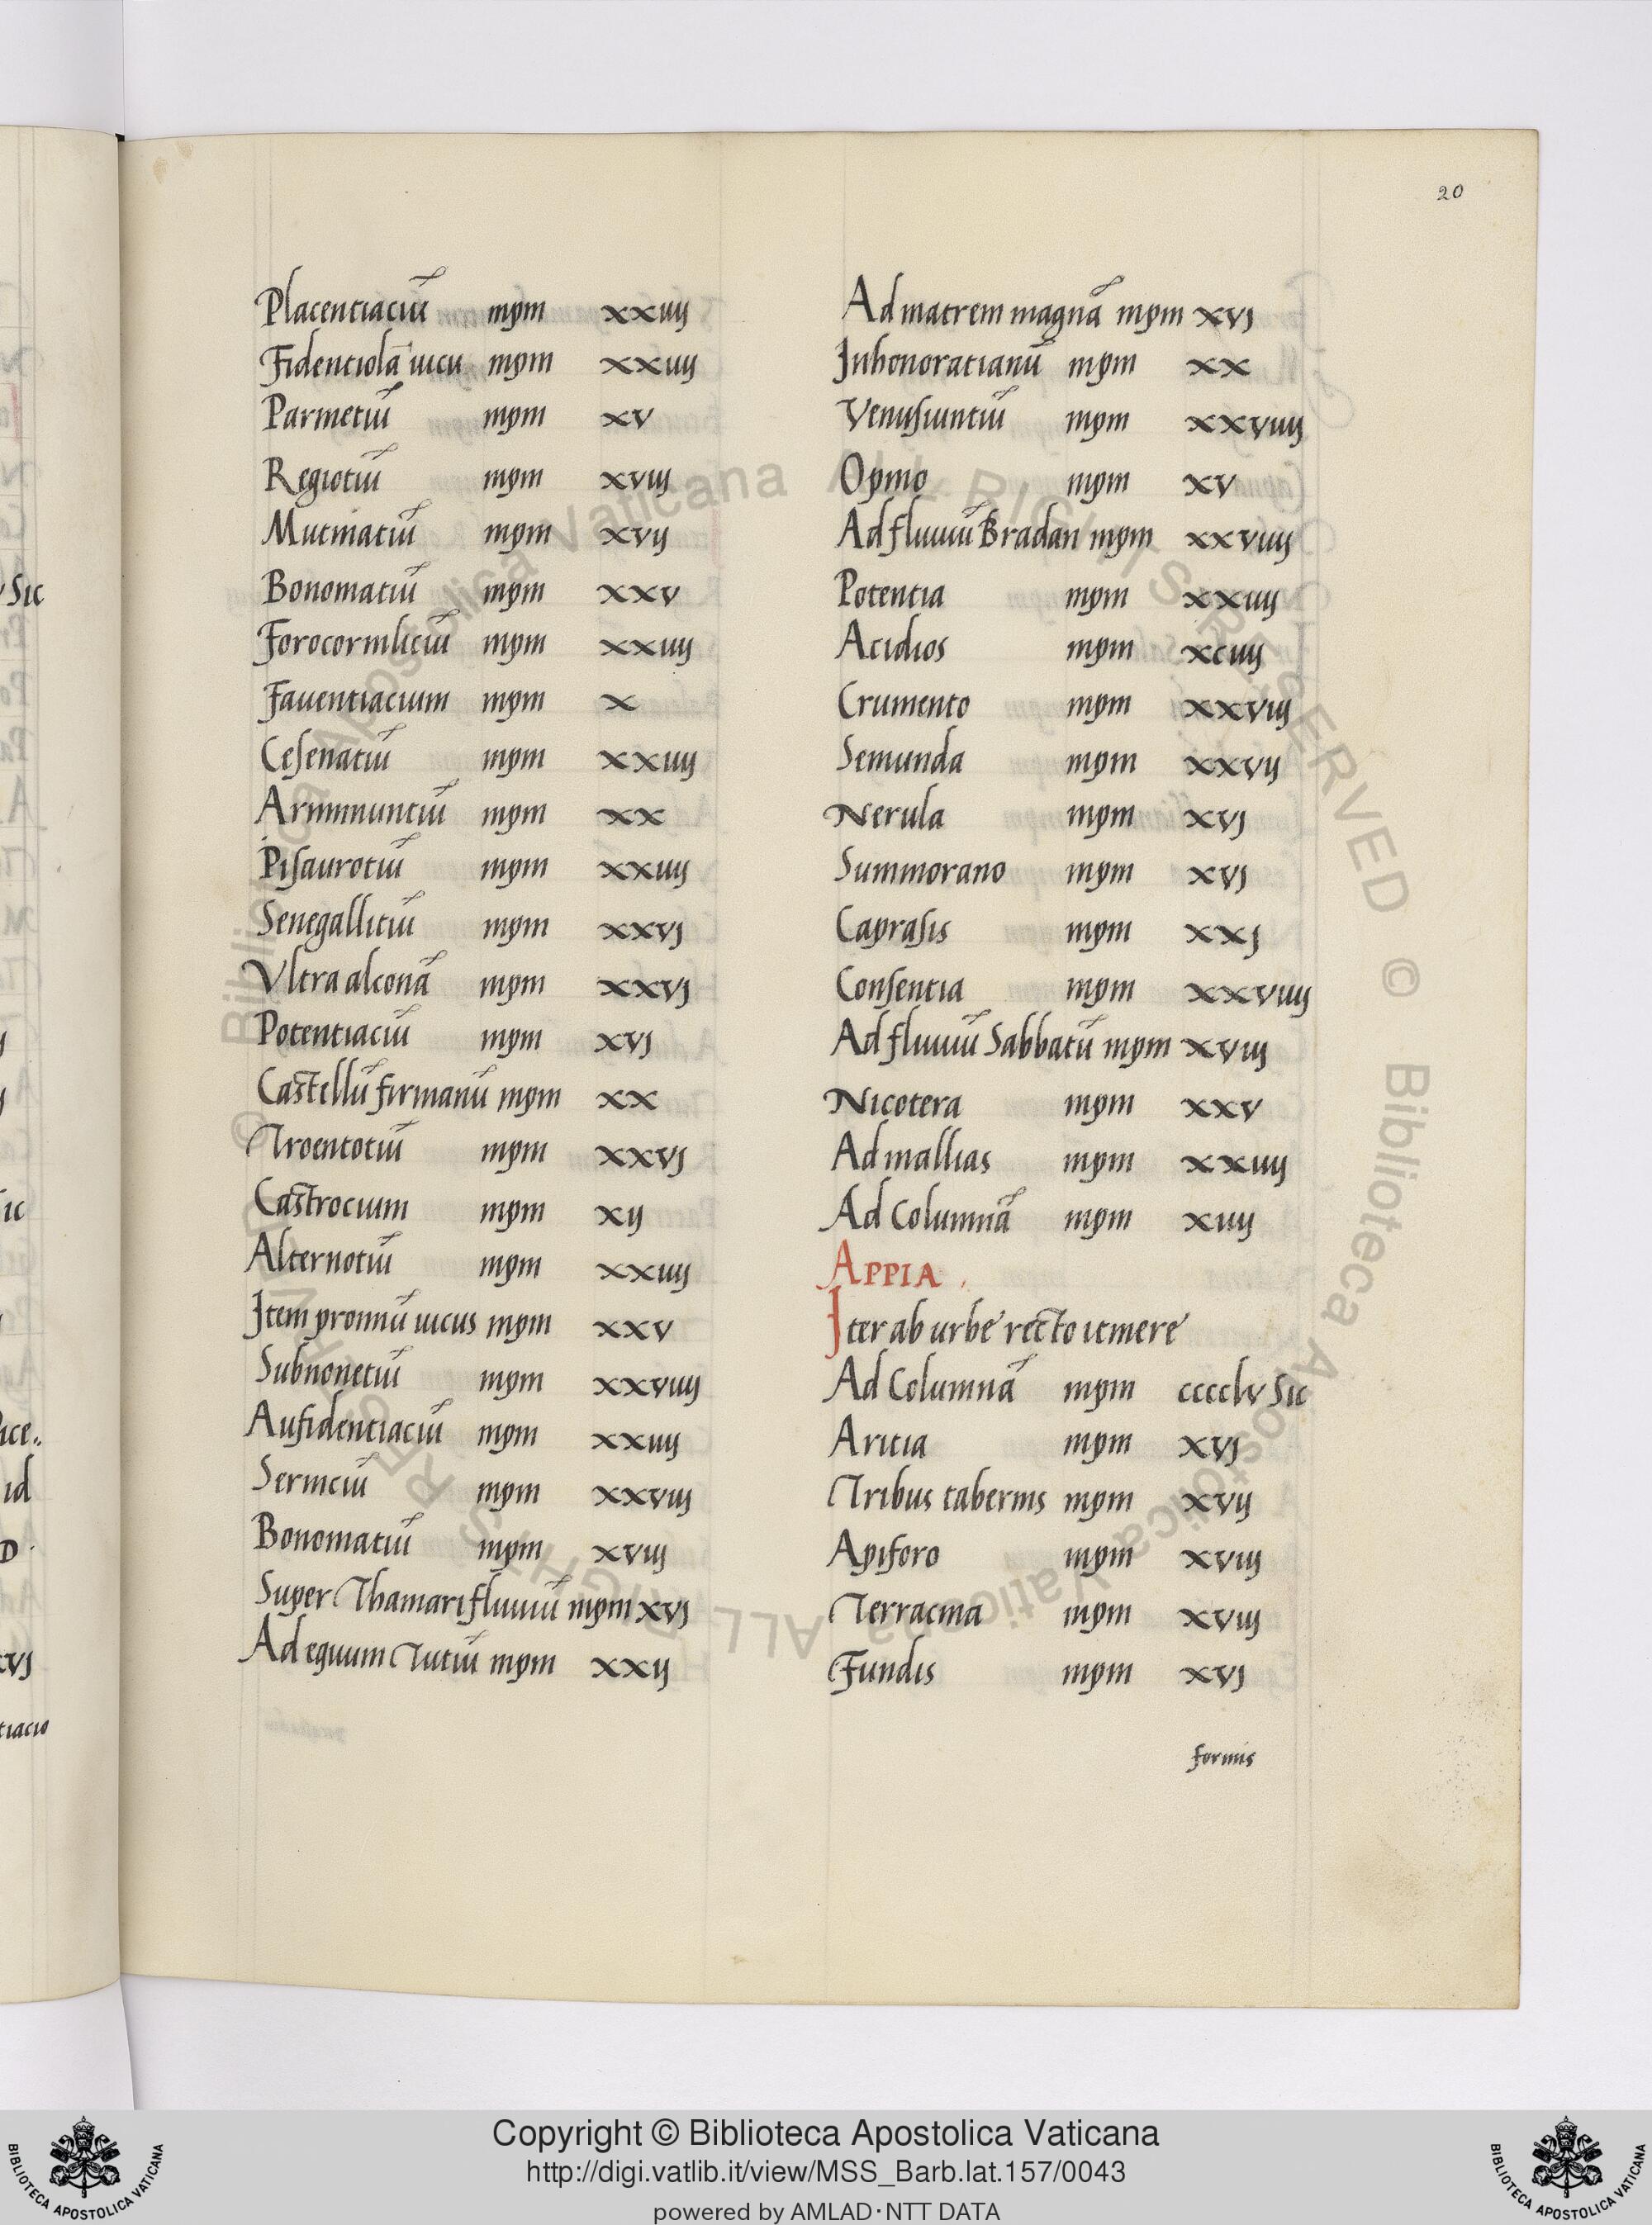 20
Placentiaciũ mpm xxiiij
Fidentiolã uicu mpm xxiiij
Parmetiũ mpm xv
Regiotiũ mpm xviij
Mutinatiũ mpm xvij
Bonomatiũ mpm xxv
Forocorniliciũ mpm xxiiij
Fauentiacium mpm x
Cesenatiũ mpm xxiiij
Ariminuntiũ mpm xx
Pisaurotiũ mpm xxiiij
Senegallitiũ mpm xxvj
Vltra alconã mpm xxvj
Potentiaciũ mpm xvj
Castellũ firmanũ mpm xx
Troentotiũ mpm xxvj
Castrocium mpm xij
Alternotiũ mpm xxiiij
Item pronnũ uicus mpm xxv
Subnonetiũ mpm xxviiij
Aufidentiaciũ mpm xxiiij
Serniciũ mpm xxviij
Bonomatiũ mpm xviij
Super Thamari fluuiũ mpm xvj
Ad equum Tutiũ mpm xxij
Ad matrem magnã mpm xvj
Inhonoratianũ mpm xx
Venusiuntiũ mpm xxviiij
Opino mpm xv
Ad fluuiũ Bradan mpm xxviiij
Potentia mpm xxiiij
Acidios mpm xciiij
Crumento mpm xxviij
Semunda mpm xxvij
Nerula mpm xvj
Summorano mpm xvj
Caprasis mpm xxj
Consentia mpm xxviiij
Ad fluuiũ Sabbatũ mpm xviij
Nicotera mpm xxv
Ad mallias mpm xxiiij
Ad Columnã mpm xiiij
APPIA.
Iter ab urbe recto itinere
Ad Columnã mpm cccclv Sic
Aritia mpm xvj
Tribus tabernis mpm xvij
Apiforo mpm xviij
Terracina mpm xviij
Fundis mpm xvj
formis
Copyright © Biblioteca Apostolica Vaticana
http://digi.vatlib.it/view/MSS_Barb.lat.157/0043
powered by AMLAD·NTT DATA